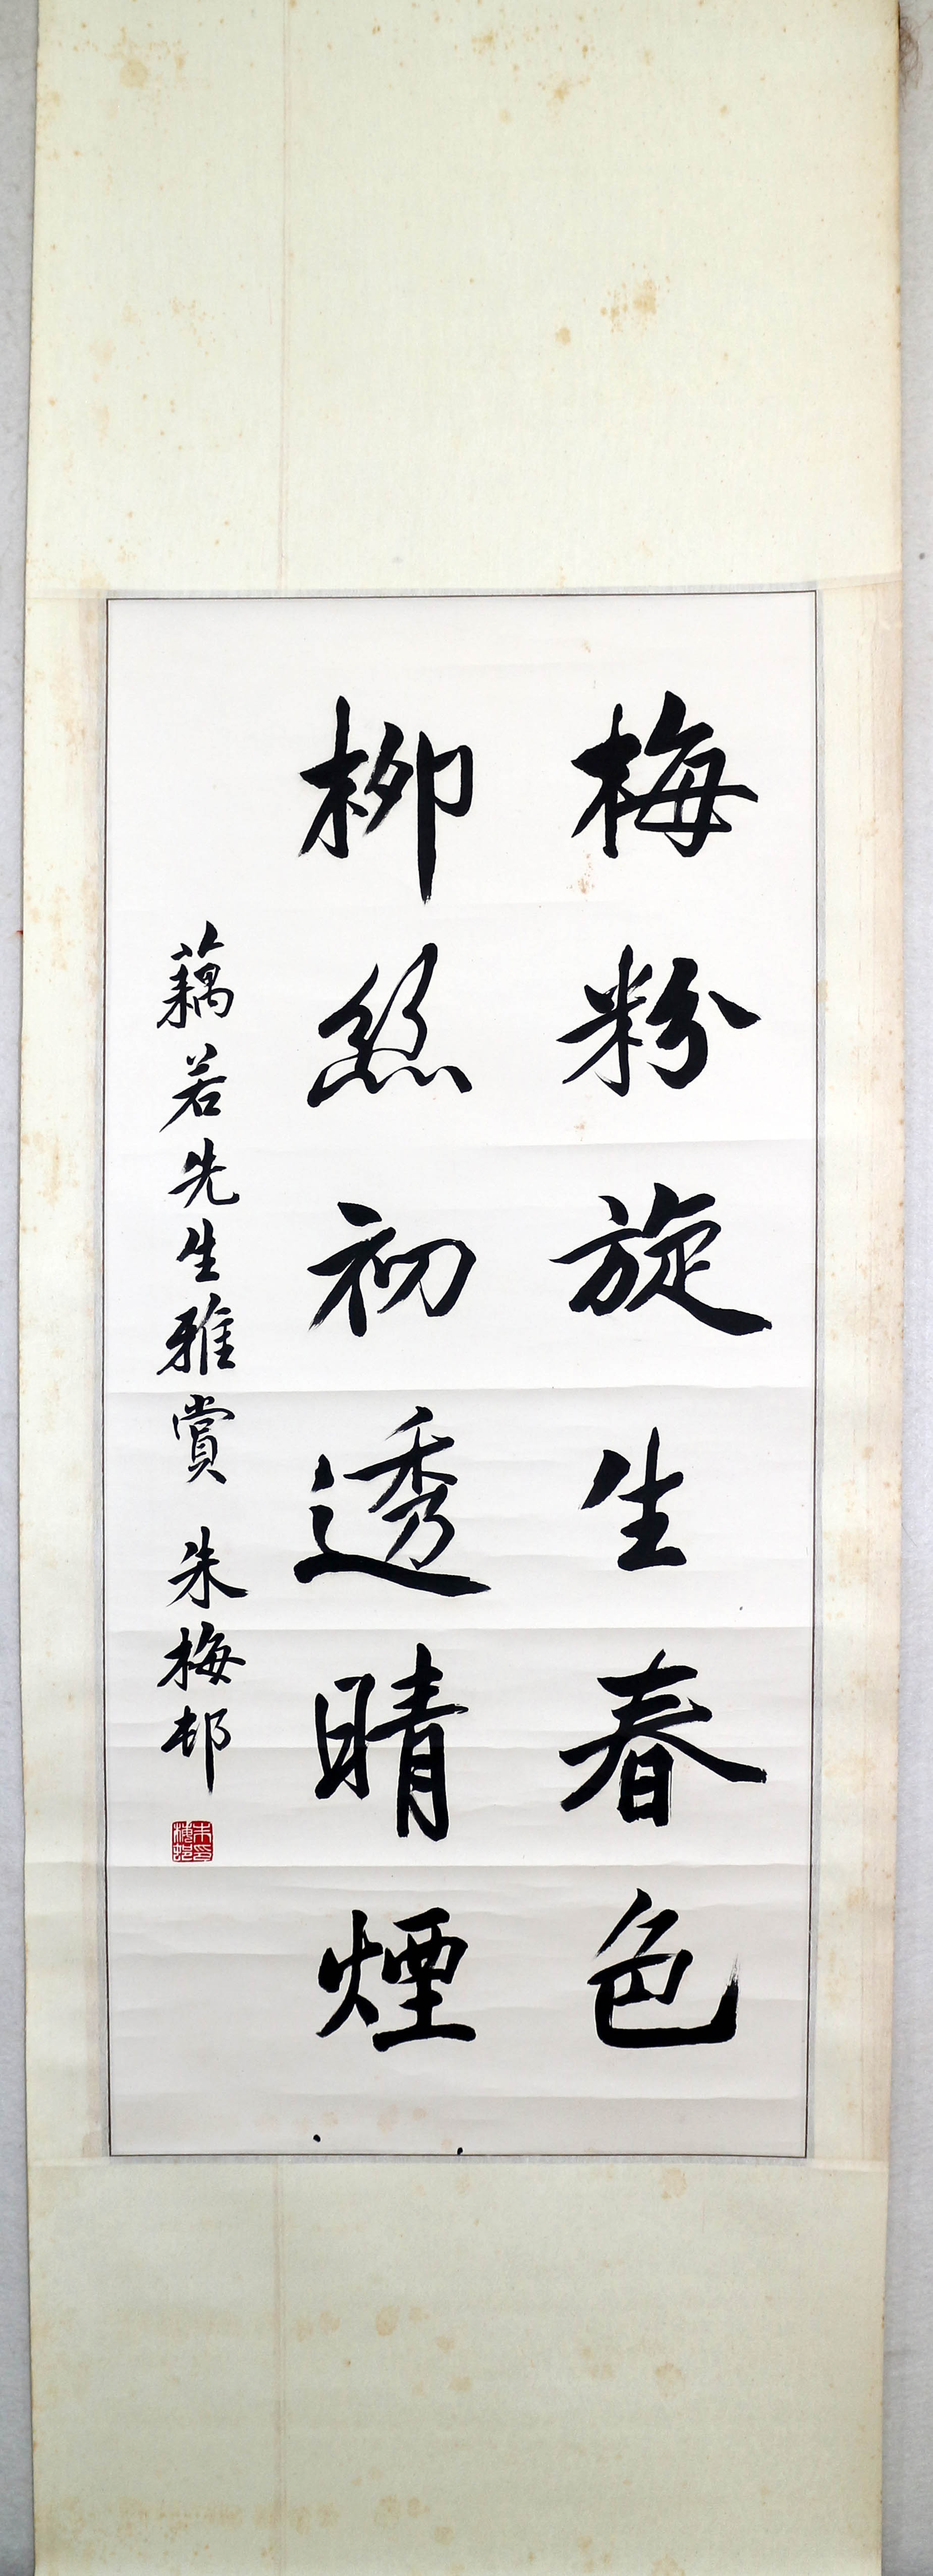 梅粉旋生春色
柳絲初透晴煙
藕若先生雅賞 朱梅邨
朱印梅邨